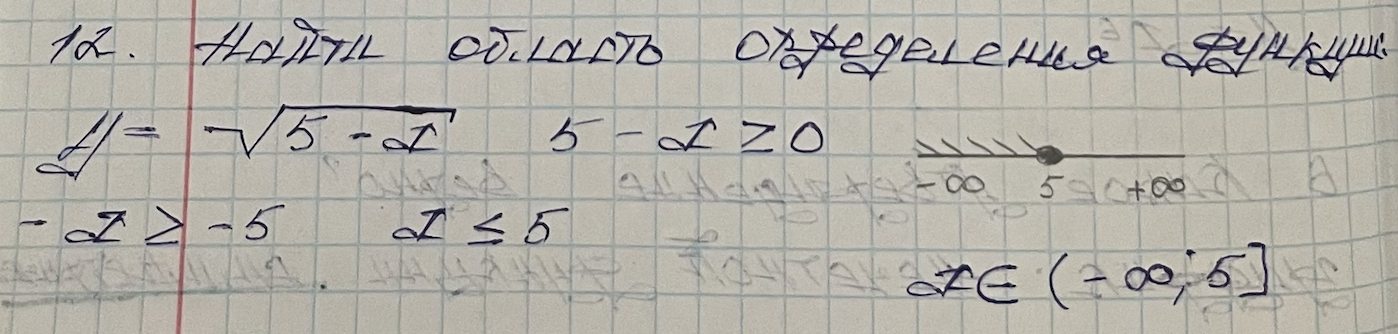 12. Найти область определения функции.
y = √5 - x 5 - x ≥ 0
-∞ 5 +∞
- x ≥ -5 x ≤ 5
x ∈ (-∞; 5]